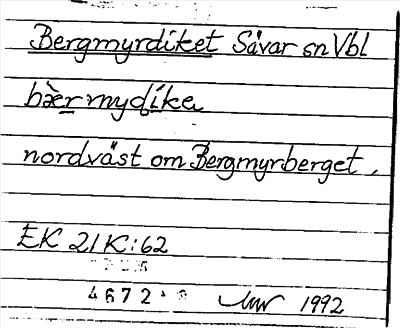 Bergmyrdiket Sävar sn Vbl
bæ̀rmyḍike
nordväst om Bergmyrberget.
EK 21K:62
4672
1992